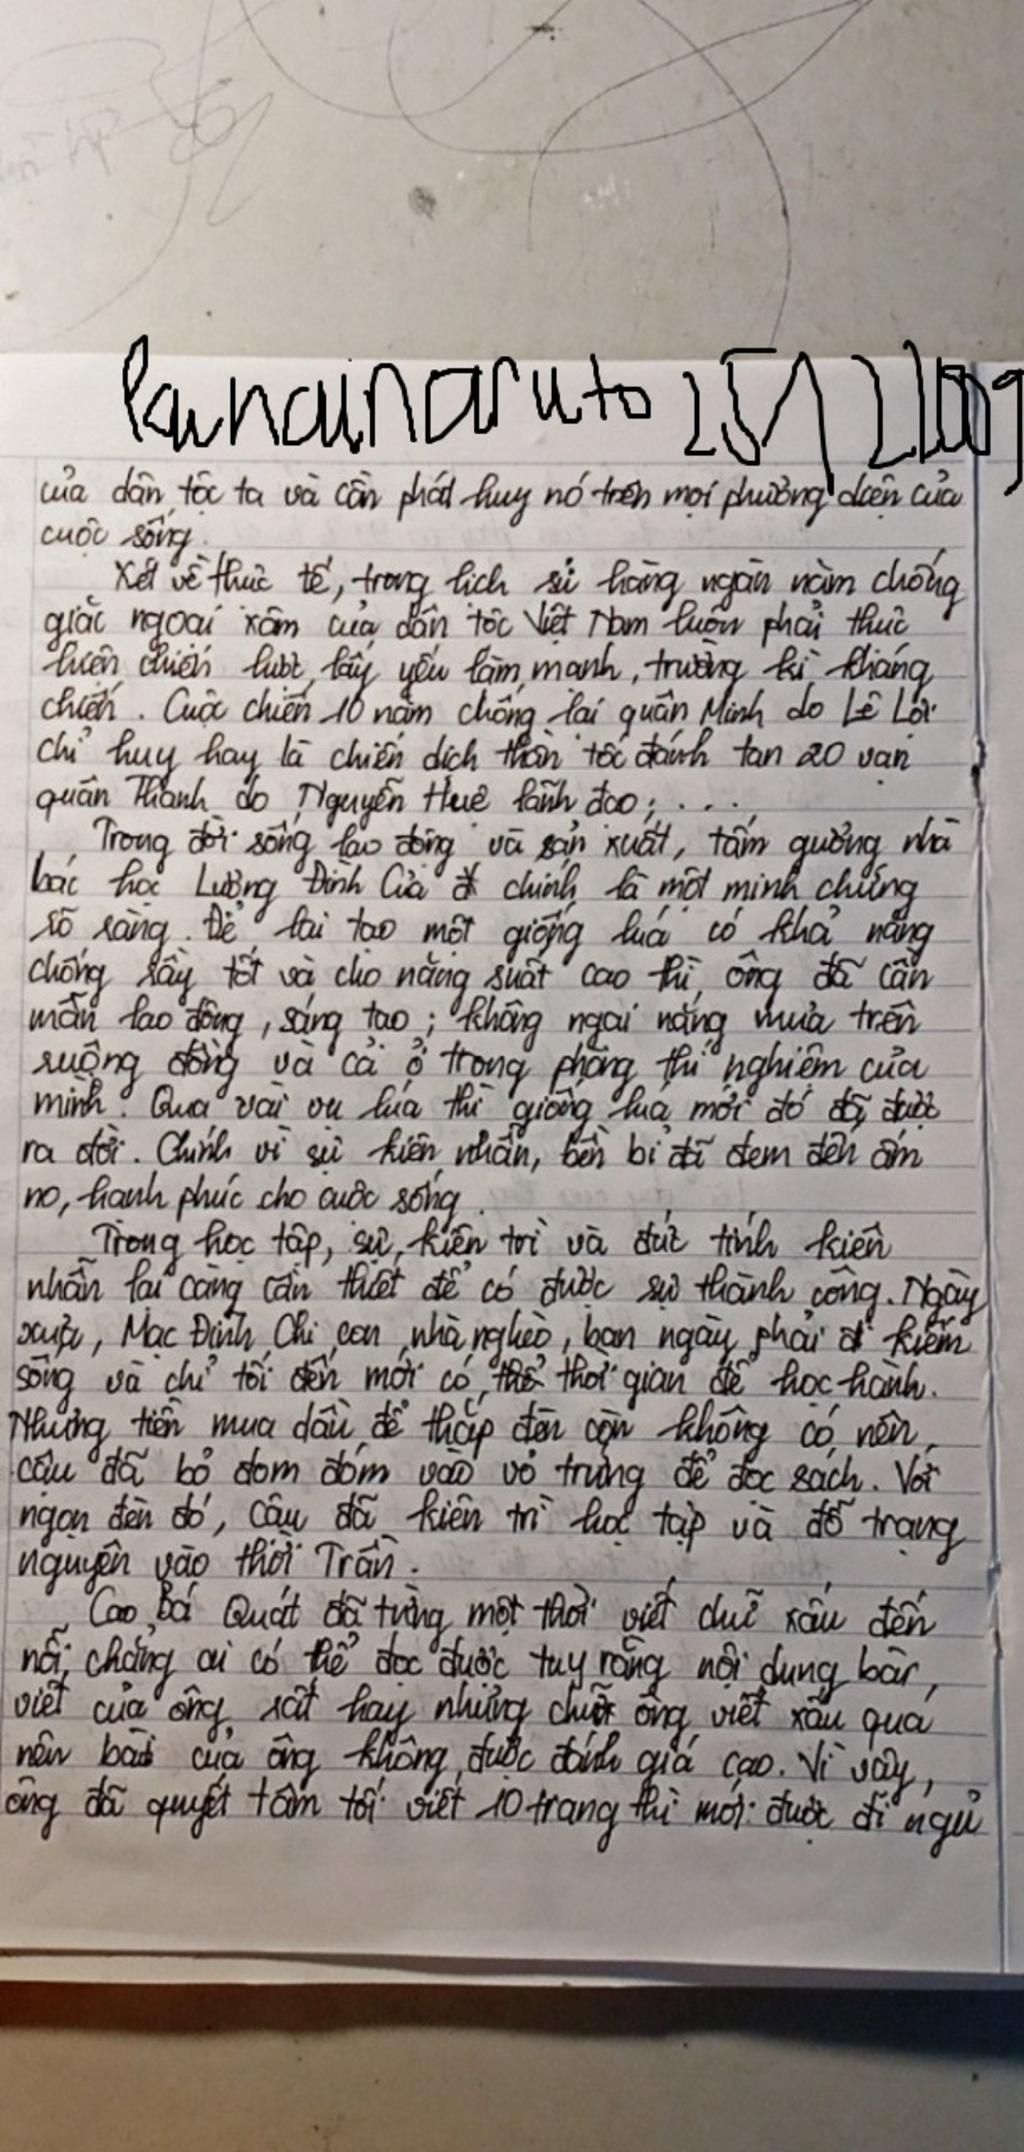 của dân tộc ta và cần phát huy nó trên mọi phương diện của
cuộc sống.
Xét về thực tế, trong lịch sử hàng ngàn năm chống
giặc ngoại xâm của dân tộc Việt Nam luôn phải thực
hiện chiến lược lấy yếu làm mạnh, trường kì kháng
chiến. Cuộc chiến 10 năm chống lại quân Minh do Lê Lợi
chỉ huy hay là chiến dịch thần tốc đánh tan 20 vạn
quân Thanh do Nguyễn Huệ lãnh đạo; ....
Trong đời sống lao động và sản xuất, tấm gương nhà
bác học Lương Đình Của chính là một minh chứng
rõ ràng. Để lai tạo một giống lúa có khả năng
chống rầy tốt và cho năng suất cao thì, ông đã cần
mẫn lao động, sáng tạo; không ngại nắng mưa trên
ruộng đồng và cả ở trong phòng thí nghiệm của
mình. Qua vài vụ lúa thì giống lúa mới đó đã được
ra đời. Chính vì sự kiên nhẫn, bền bỉ đã đem đến ấm
no, hạnh phúc cho cuộc sống.
Trong học tập, sự kiên trì và đức tính kiên
nhẫn lại càng cần thiết để có được sự thành công. Ngày
xưa, Mạc Đĩnh Chi con nhà nghèo, ban ngày phải đi kiếm
sống và chỉ tối đến mới có thời gian để học hành.
Nhưng tiền mua dầu để thắp đèn còn không có nên,
cậu đã bỏ đom đóm vào vỏ trứng để đọc sách. Với
ngọn đèn đó, cậu đã kiên trì học tập và đỗ trạng
nguyên vào thời Trần.
Cao Bá Quát đã từng một thời viết chữ xấu đến
nỗi, chẳng ai có thể đọc được tuy rằng nội dung bài
viết của ông rất hay nhưng chữ ông viết xấu quá
nên bài của ông không được đánh giá cao. Vì vậy,
ông đã quyết tâm tối viết 10 trang thì mới được đi ngủ